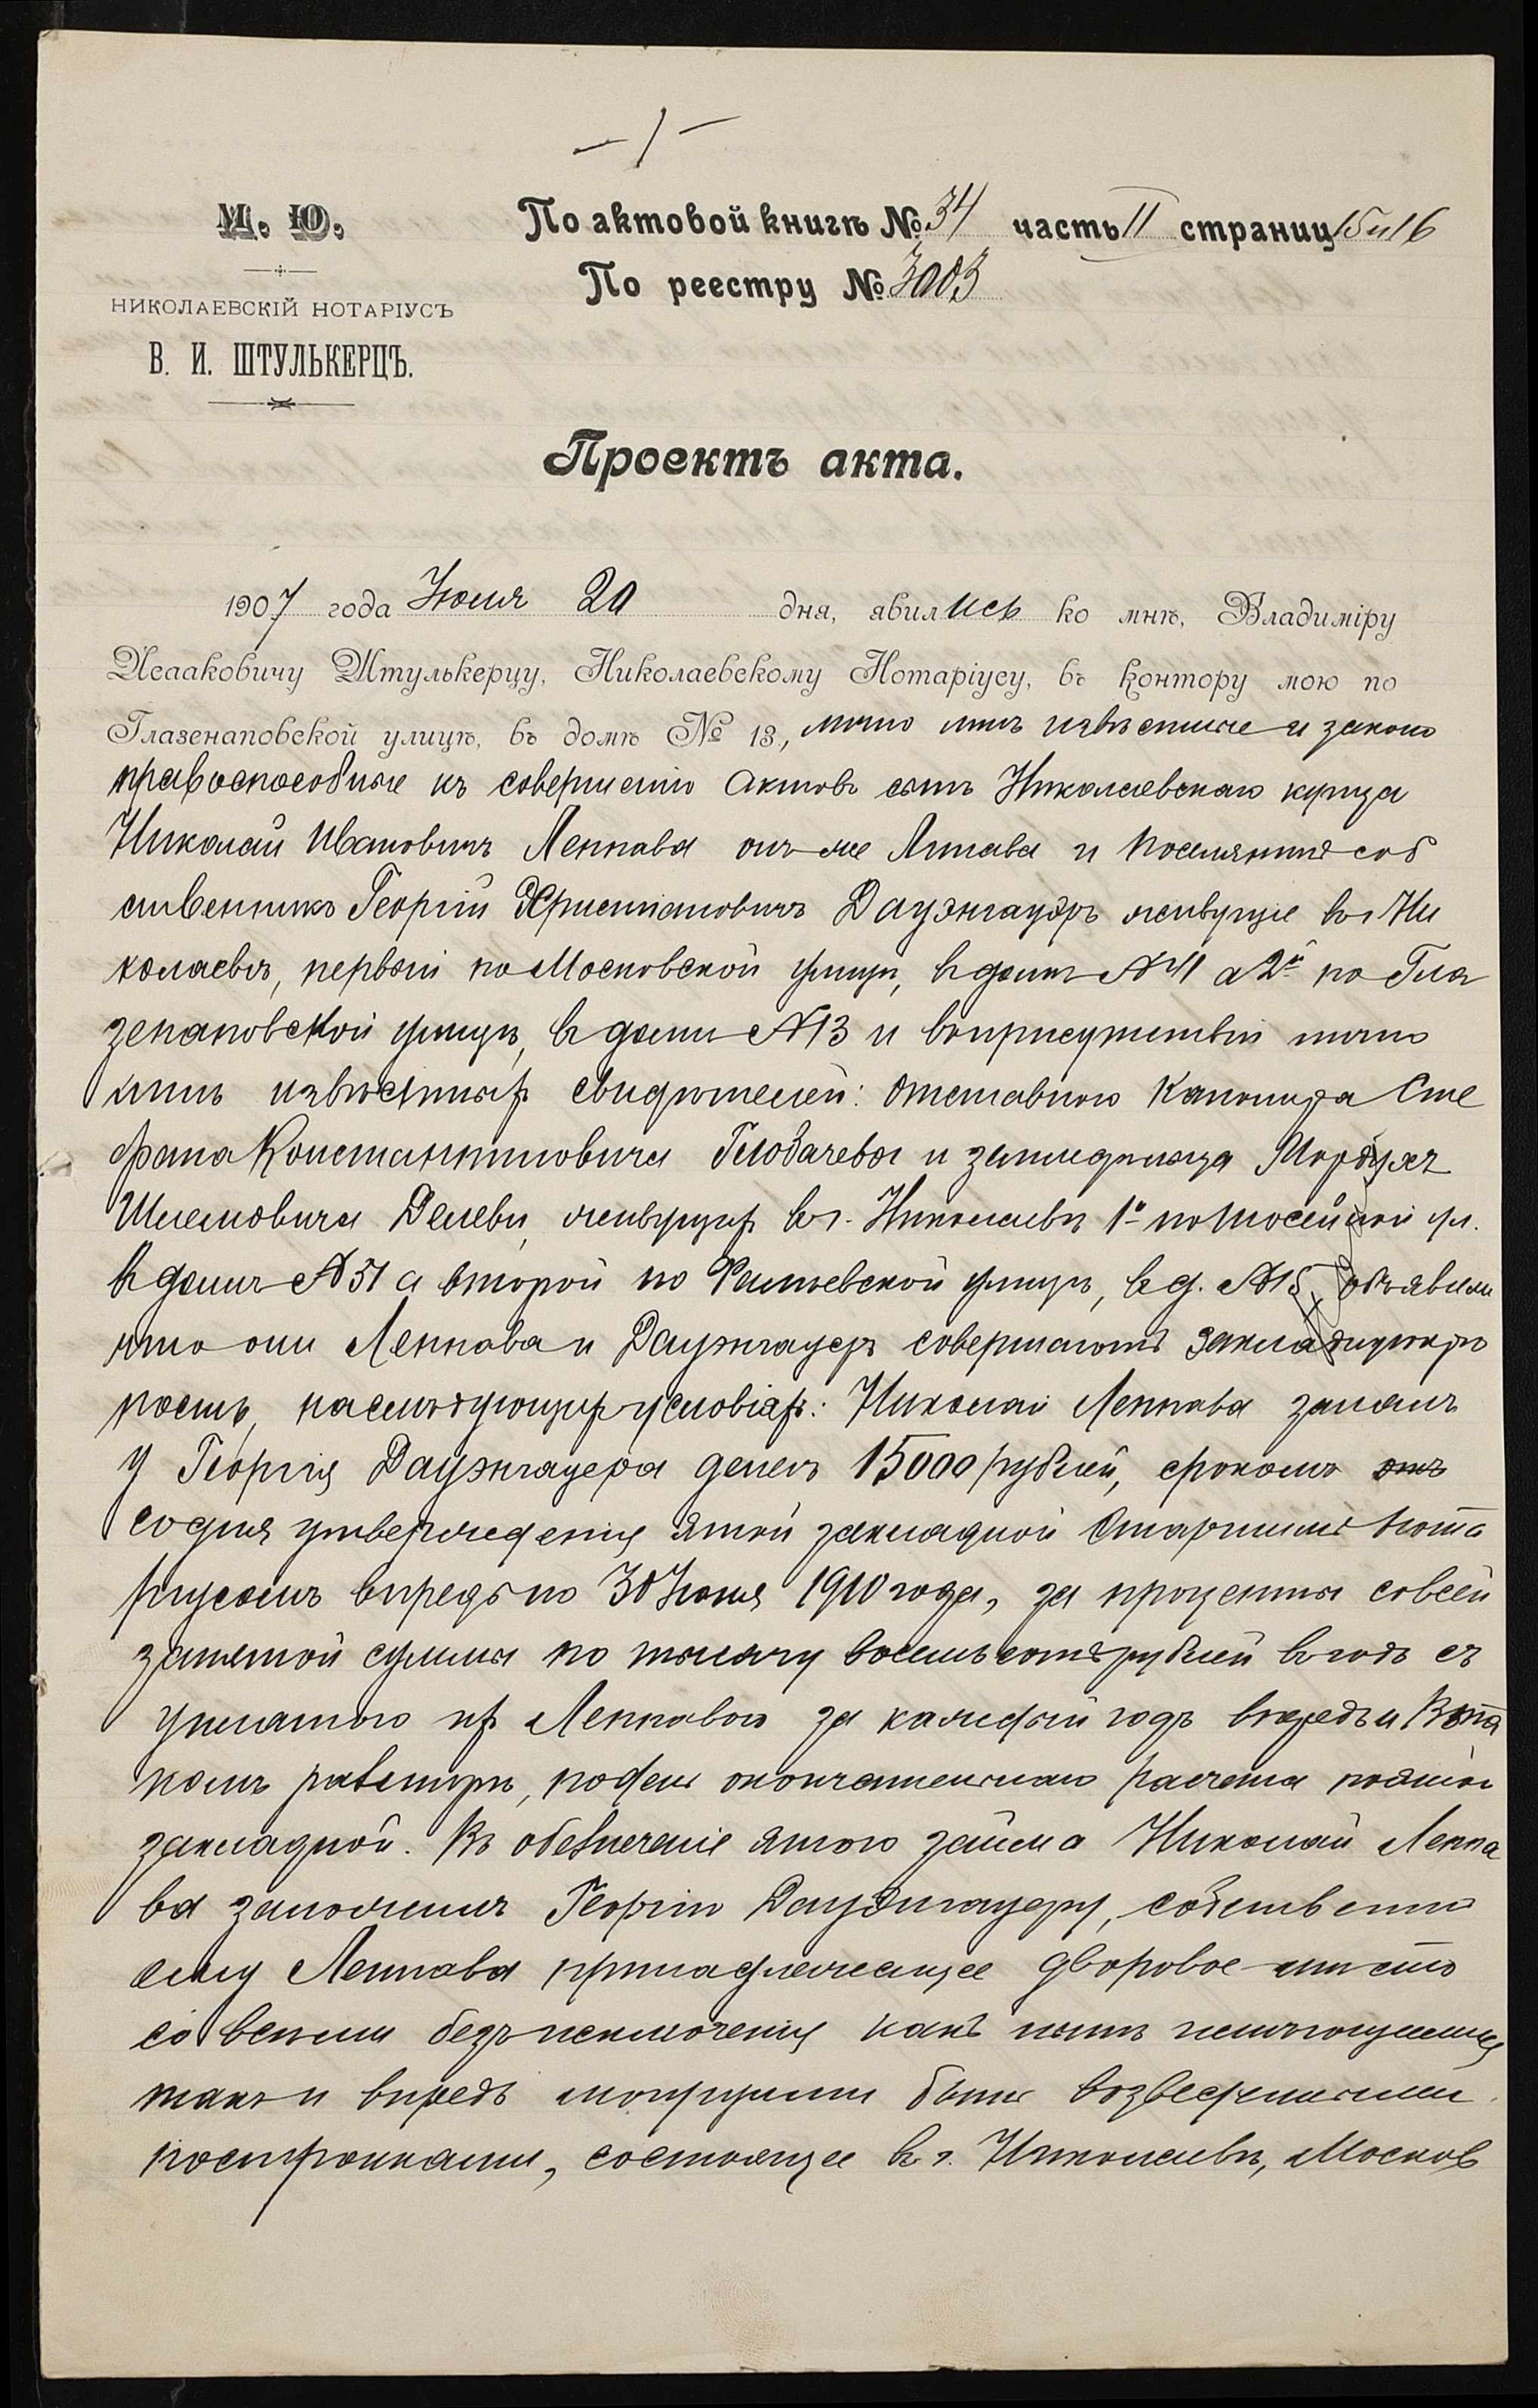 — 1 —
М. Ю.
По актовой книгѣ № 34 часть II страниц 15 и 16
По реестру № 3003
НИКОЛАЕВСКІЙ НОТАРІУСЪ
В. И. ШТУЛЬКЕРЦЪ.
Проектъ акта.
1907 года Июня 20 дня, явились ко мнѣ, Владиміру
Исааковичу Штулькерцу, Николаевскому Нотаріусу, въ контору мою по
Глазенаповской улицѣ, въ домѣ № 13, лично мнѣ извѣстные и законо
правоспособные къ совершенію актовъ сынъ Николаевскаго купца
Николай Ивановичъ Леппава онъ же Липава и поселянинъ соб
ственникъ Георгій Христіановичъ Даузнгауэръ живущіе въ г Ни
колаевѣ, первый по Московской улицѣ, в домѣ № 41 а 2й по Гла
зенаповской улицѣ, в домѣ № 13 и въ присутствіи лично
мнѣ извѣстныхъ свидѣтелей: отставного Капитана Сте
фана Константиновича Глобачева и запиедныхъ
Шлемовича живущихъ в г. Николаевѣ 1й по ул.
в домѣ № 51 а второй по улицѣ, в д. № 15, объявили
что они Леппава и Даузнгауеръ совершаютъ закладную крѣ
пость, на слѣдующихъ условіяхъ: Николай Леппава занялъ
у Георгія Даузнгауера денегъ 15000 рублей, срокомъ отъ
со дня утвержденія этой закладной Старшимъ Нота
ріусомъ впредь по 30 Июня 1910 года, за проценты со всей
занятой суммы по тысячу восемьсотъ рублей в годъ съ
уплатою ихъ Леппавою за каждый годъ впередъ и въ та
комъ размѣрѣ, по день окончательнаго расчета по этой
закладной. Въ обезпеченіе этого займа Николай Леппа
ва заложилъ Георгію Даузнгауеру, собственно
ему Леппава принадлежащее дворовое мѣсто
со всѣми безъ исключенія какъ нынѣ имѣющимися
такъ и впредь могущими быть возведенными
постройками, состоящее в г. Николаевѣ, Москов